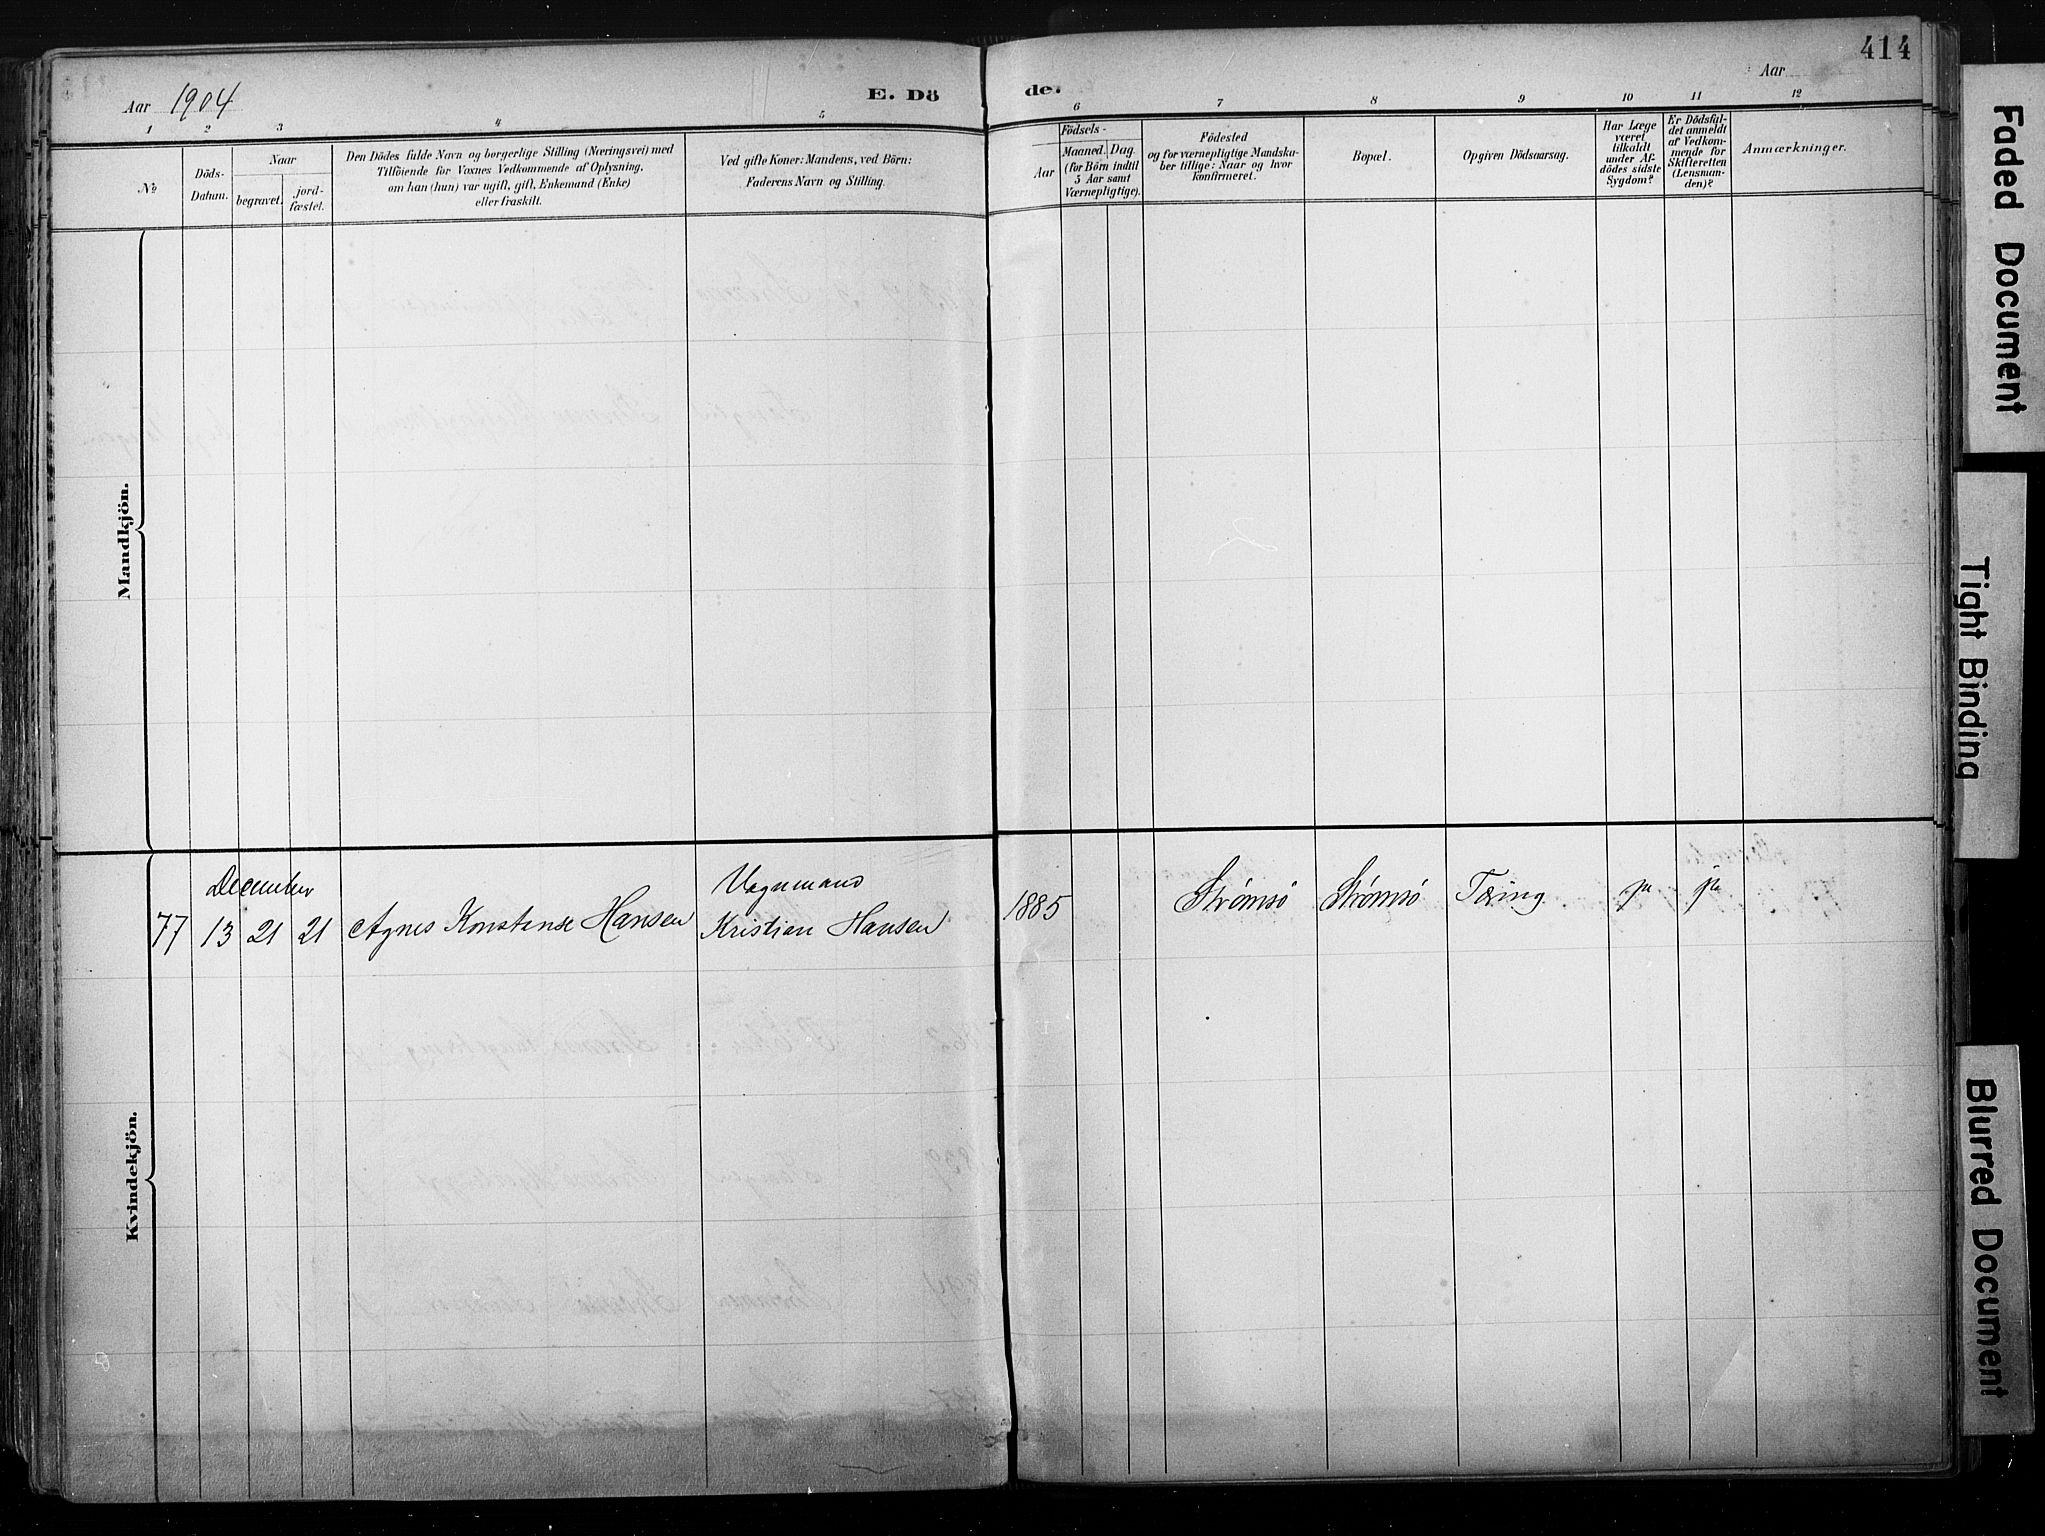 414
Aar 1904
E. Dö
de.
Aar
1 2 3 4 5 6 7 8 9 10 11 12
№
Döds-
Datum.
Naar
begravet.
jord-
fæstet.
Den Dödes fulde Navn og borgerlige Stilling (Næringsvei) med
Tilföiende for Voxnes Vedkommende af Oplysning,
om han (hun) var ugift, gift, Enkemand (Enke)
eller fraskilt.
Ved gifte Koner: Mandens, ved Börn:
Faderens Navn og Stilling.
Födsels-
Aar
Maaned. Dag.
(for Börn indtil
5 Aar samt
Værnepligtige).
Födested
og for værnepligtige Mandska-
ber tillige: Naar og hvor
konfirmeret.
Bopæl.
Opgiven Dödsaarsag.
Har Læge
været
tilkaldt
under Af-
dödes sidste
Sygdom?
Er Dödsfal-
det anmeldt
af Vedkom-
mende for
Skifteretten
(Lensman-
den)?
Anmærkninger.
Mandkjön.
Kvindekjön.
December
77 13 21 21 Agnes Konstense Hansen
Vognmand
Kristian Hansen
1885 Strømsö Strømsö Tæring ja ja
Faded Document
Tight Binding
Blurred Document